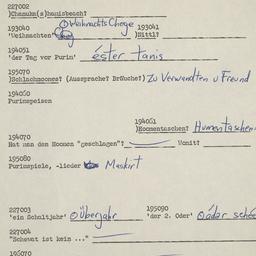 227002
)Chanuk(a)hanisbesch?
193040 ① Weihnachts Choge 193041
'Weihnachten' )Nittl?
194051
'der Tag vor Purim' éster tanis
195070
)Schlachmones? (Aussprache? Bräuche?) Zu Verwandten u Freund
194060
Purimspeisen
194061
)Homentaschen? Humentaschen
194070
Hat man den Hooman "geschlagen"? Womit?
195080
Purimspiele, -lieder Maskirt
227003 195090
'ein Schaltjahr' ① Überjahr 'der 2. Oder' ① odar
227004
"Schewat ist kein ..."
195070